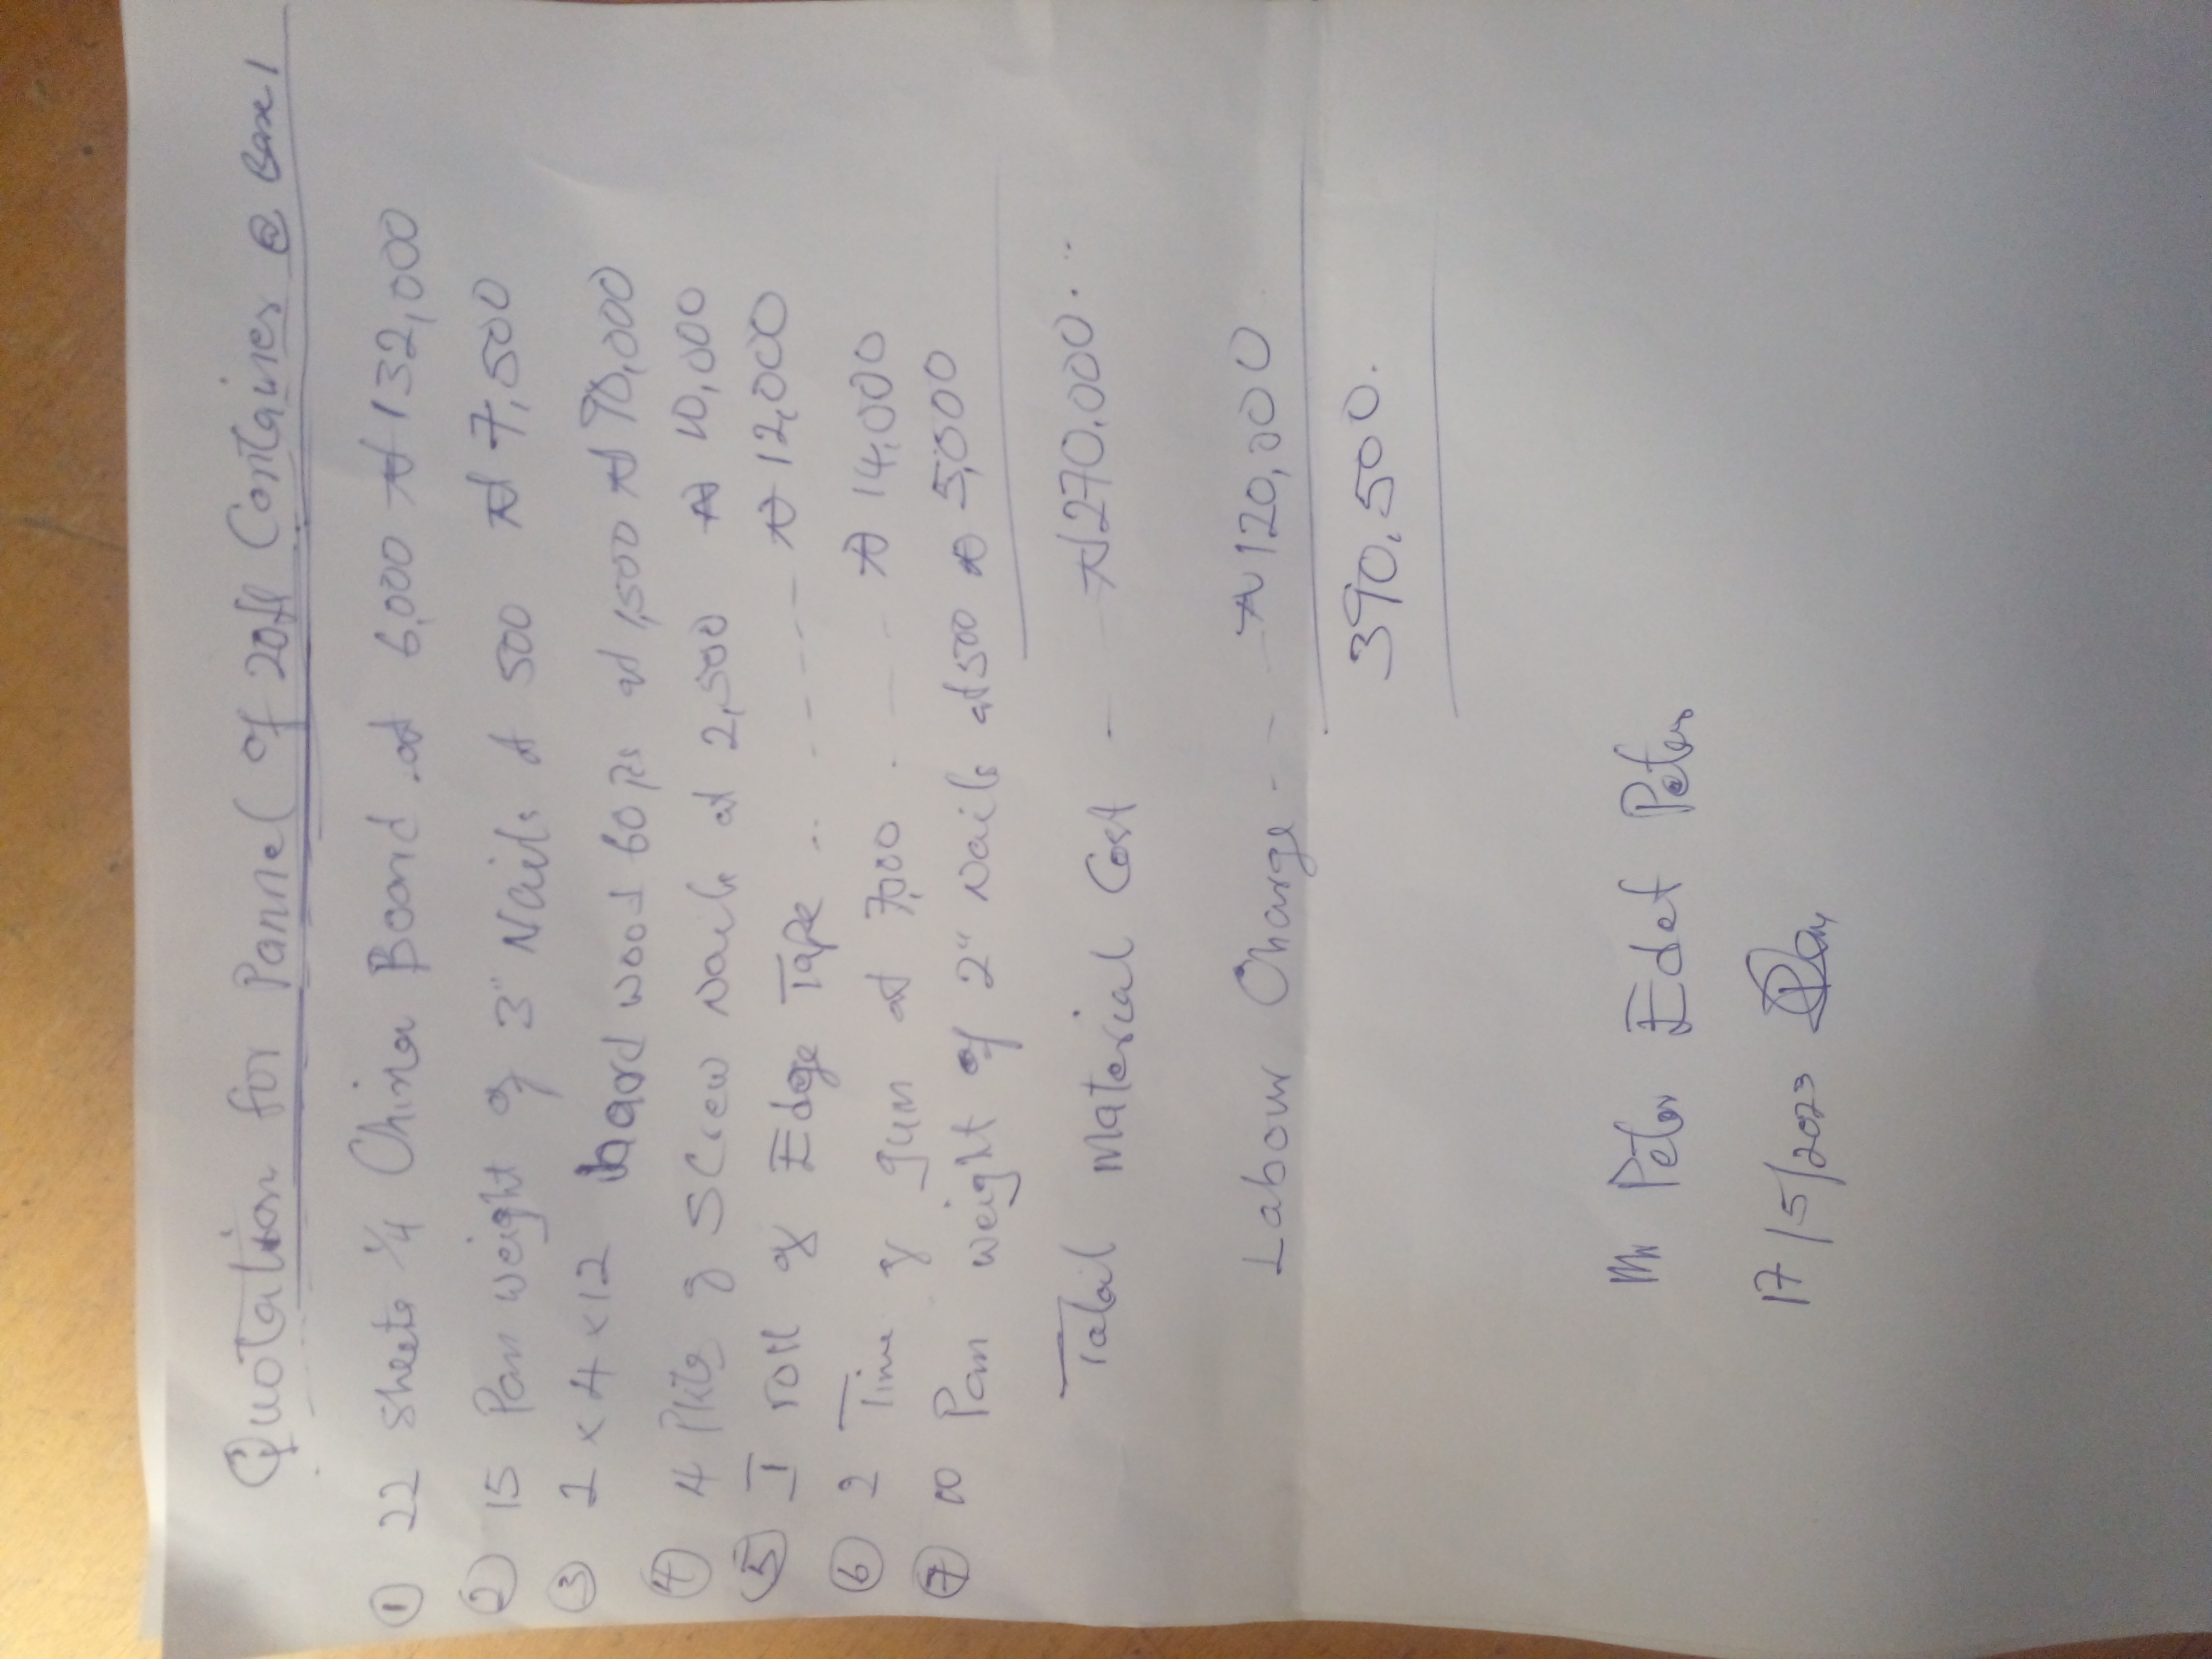 Quotation for Pannel of 20ft Container @ Base 1
① 22 Sheets ¼ China Board at 6,000 ₦132,000
② 15 Pan weight of 3" Nails at 500 ₦7,500
③ 2 x 4 x 12 hard wood 60 Ps at 1,500 ₦90,000
④ 4 Pkts of Screw Nails at 2,500 ₦10,000
⑤ 1 roll of Edge Tape .. - - - - ₦12,000
⑥ 2 Tins of gum at 7,000 . - - - ₦14,000
⑦ 10 Pan weight of 2" Nails at 500 ₦5,000
Total Material Cost - ₦270.000...
Labour Charge - - - ₦120,000
390,500.
Mr Peter Edet Peter
17/5/2023